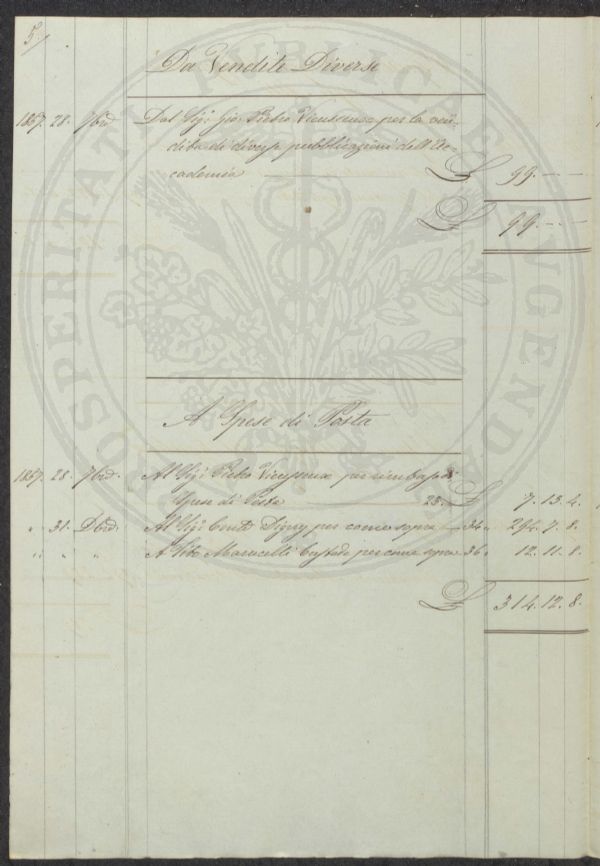 5
Da Vendite Diverse
28. 7bre Dal Sig: Gio: Pietro Vieusseux per la ven-
dita di diverse pubblicazioni dell'Ac-
cademia £ 99. — —
£ 99. — —
A Spese di Posta
28. 7bre. Al Sig: Pietro Vieusseux per rimborso
Spese di Posta 28. £ 7. 13. 4.
" 31. Dbre. Al Sig: Conte per come sopra 34. " 294. 7. 8.
" " " A Vito Marucelli Custode per come sopra 36. " 12. 11. 8.
£ 314. 12. 8.
PROSPERITATI PUBLICAE AUGENDAE